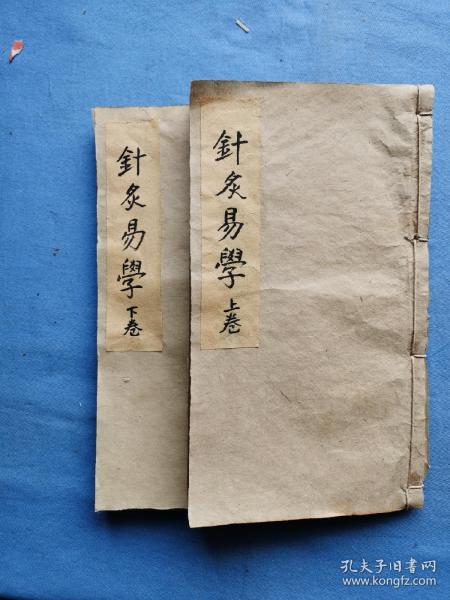 針灸易學上卷
針灸易學下卷
孔夫子旧书网
www.kongfz.com